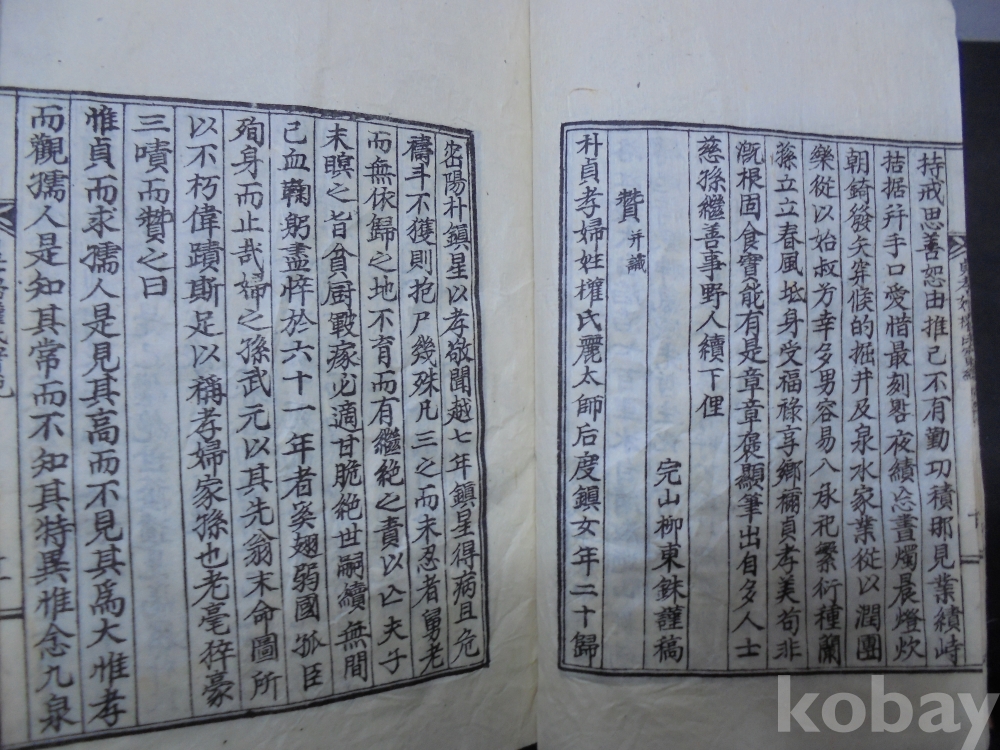 持戒思善恕由推己不有勤功積那見業績峙
拮据幷手口愛惜最刻晷夜績忘晝燭晨燈炊
朝錡發矢穿候的掘井及泉水家業從以潤團
樂從以始叔芳幸多男容易八承祀繁衍種蘭
蓀立立春風坻身受福祿享鄕稱貞孝美苟非
漑根固食實能有是章章褒顯筆出自多人士
慈孫繼善事野人續下俚
完山柳東銖謹稿
贊 并識
朴貞孝婦姓權氏麗太師后度鎭女年二十歸
密陽朴鎭星以孝敬聞越七年鎭星得病且危
禱斗不獲則抱尸幾殊凡三之而未忍者舅老
而無依歸之地不育而有繼絶之責以亡夫子
未瞑之旨貧厨毄瘃必適甘脆絶世嗣續無間
己血鞠躬盡悴於六十一年者奚翅弱國孤臣
殉身而止哉婦之孫武元以其先翁末命圖所
以不朽偉蹟斯足以稱孝婦家孫也老毫猝豪
三嘖而贊之曰
惟貞而求孺人是見其高而不見其爲大惟孝
而觀孺人是知其常而不知其特異惟念九泉
kobay